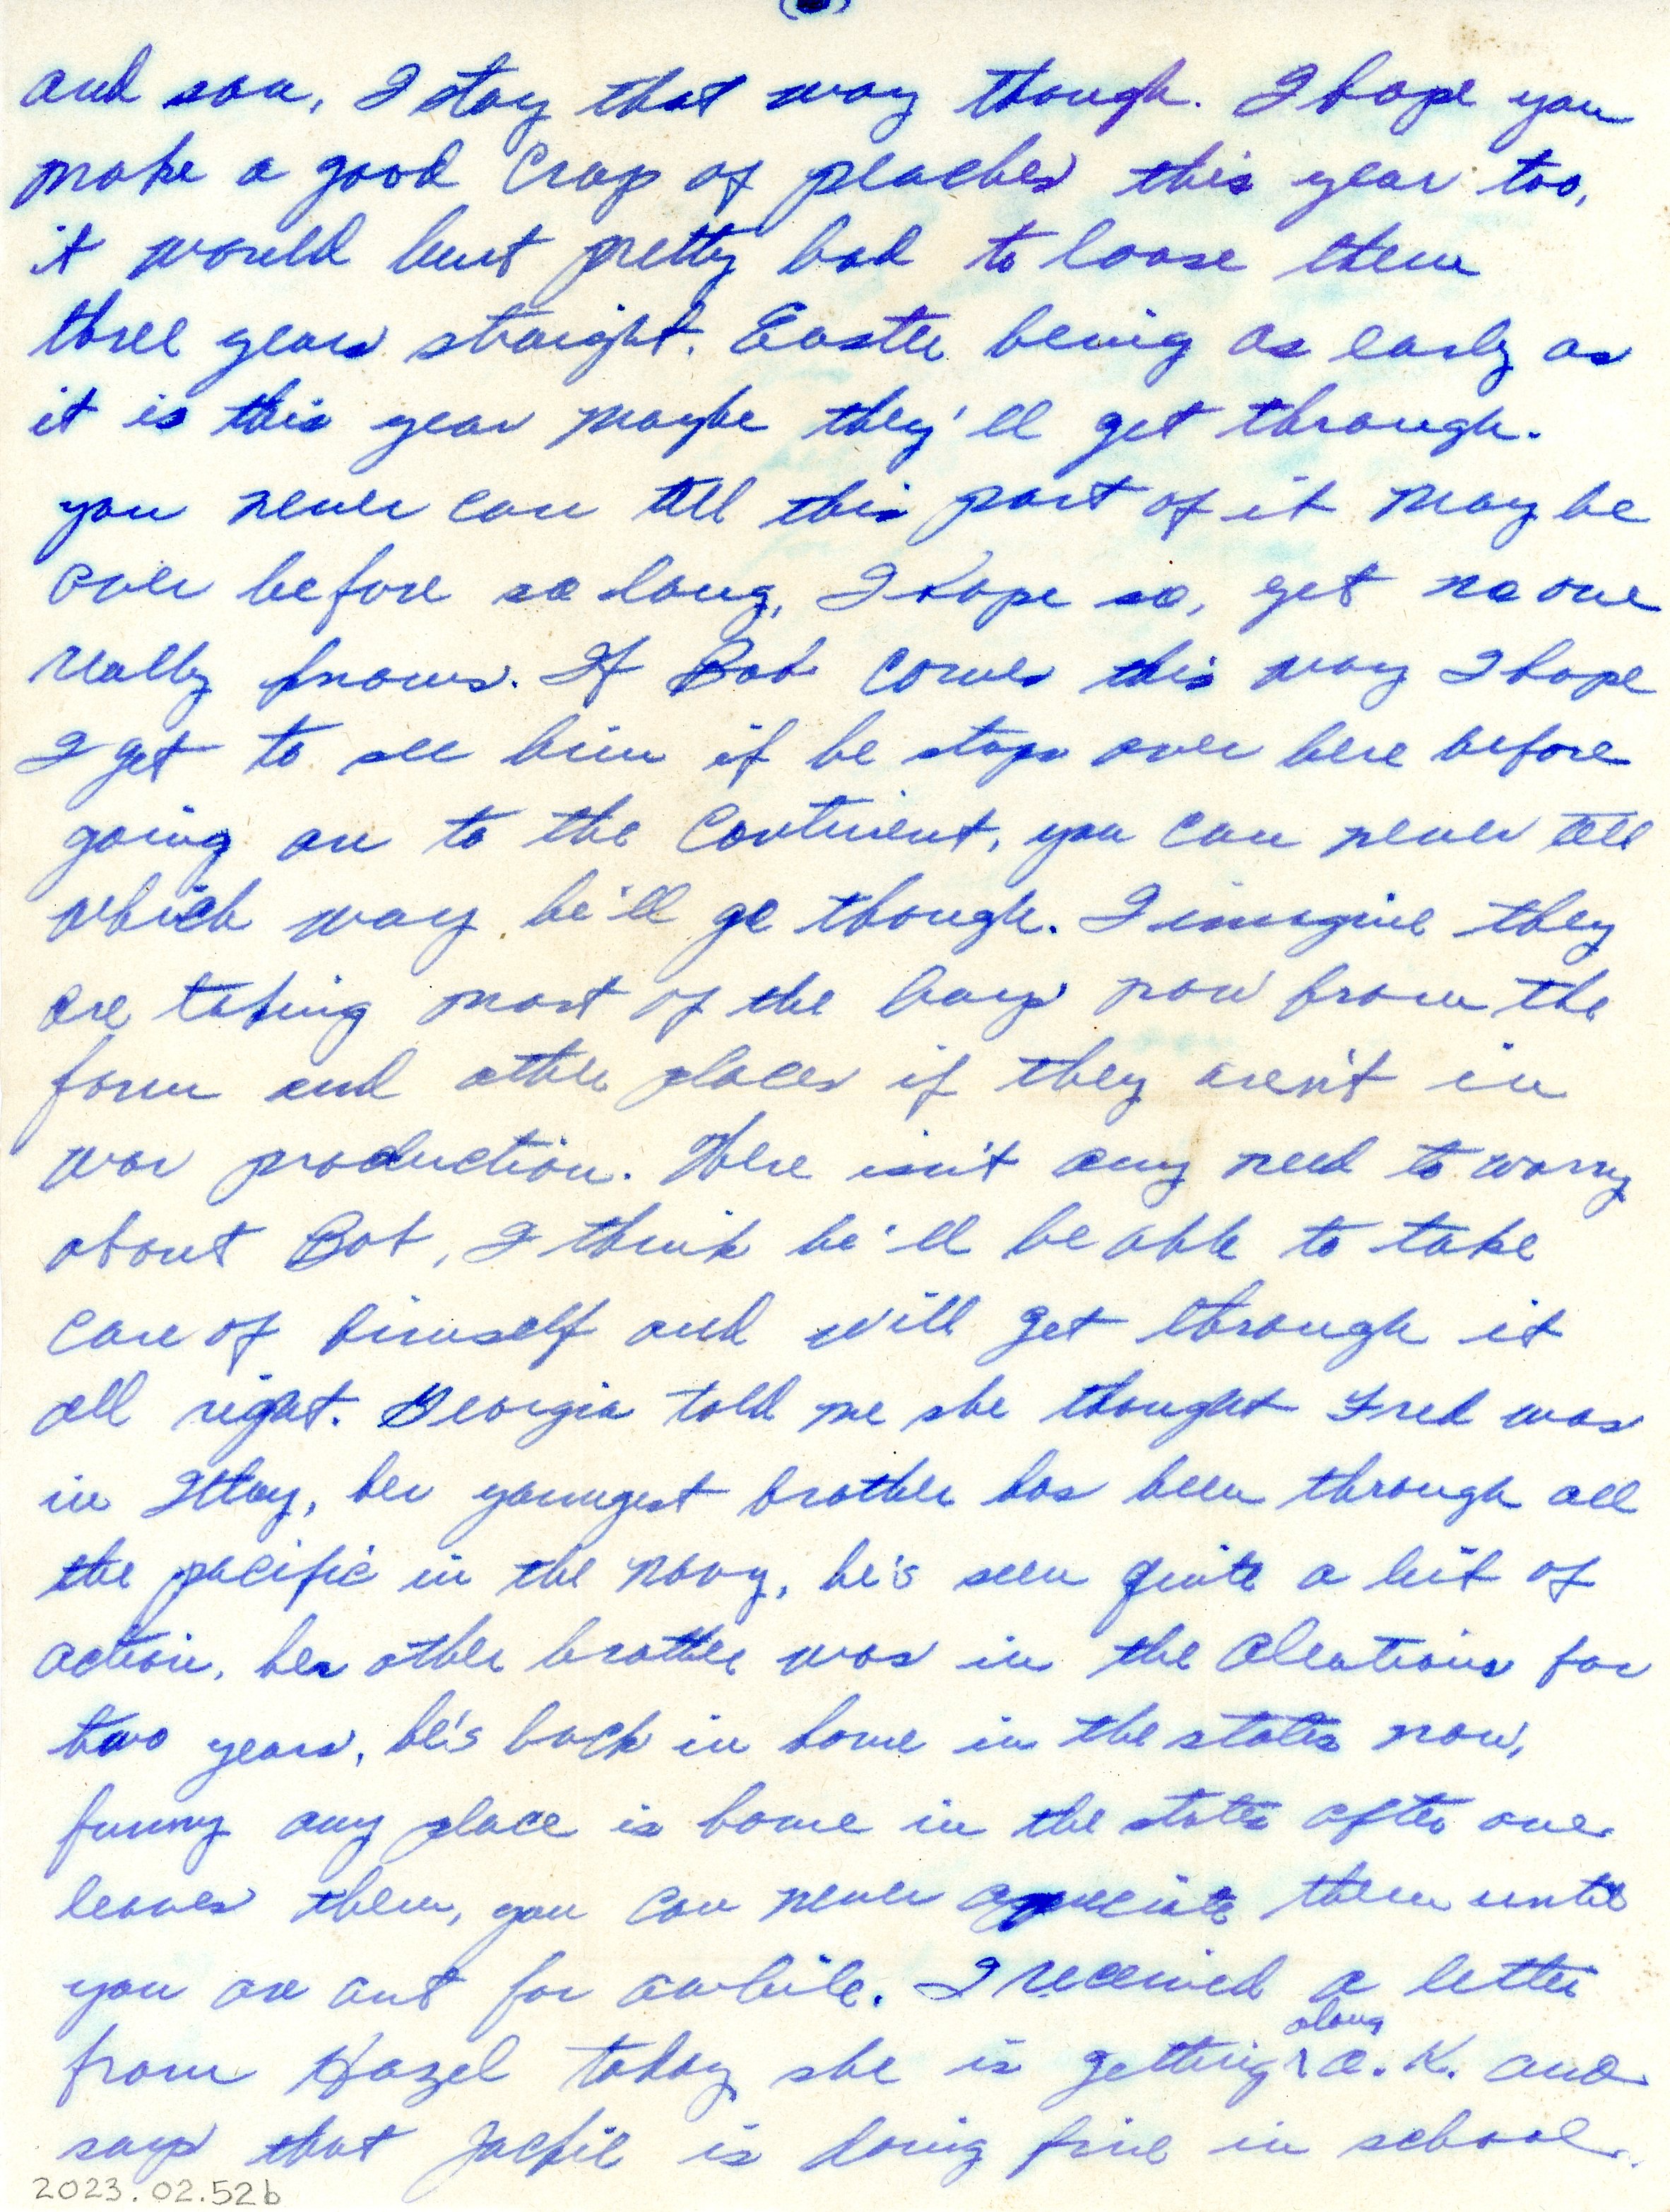 and son, I stay that way though. I hope you
make a good crop of peaches this year too,
it would hurt pretty bad to loose them
three years straight. Easter being as early as
it is this year maybe they'll get through.
you never can tell this part of it may be
over before so long, I hope so, yet no one
really knows. If Bob comes this way I hope
I get to see him if he stops over here before
going on to the Continent, you can never tell
which way he'll go though. I imagine they
are taking most of the boys now from the
farm and other places if they aren't in
war production. There isn't any need to worry
about Bob, I think he'll be able to take
care of himself and will get through it
all right. Georgia told me she thought Fred was
in Itlay, her youngest brother has been through all
the pacific in the Navy, he's seen quite a bit of
action, her other brother was in the Aleutions for
two years, he's back in home in the states now,
funny any place is home in the states after one
leaves them, you can never appreciate them until
you are out for awhile. I received a letter
from Hazel today she is getting along O.K. and
says that Jackie is doing fine in school.
2023.02.52b